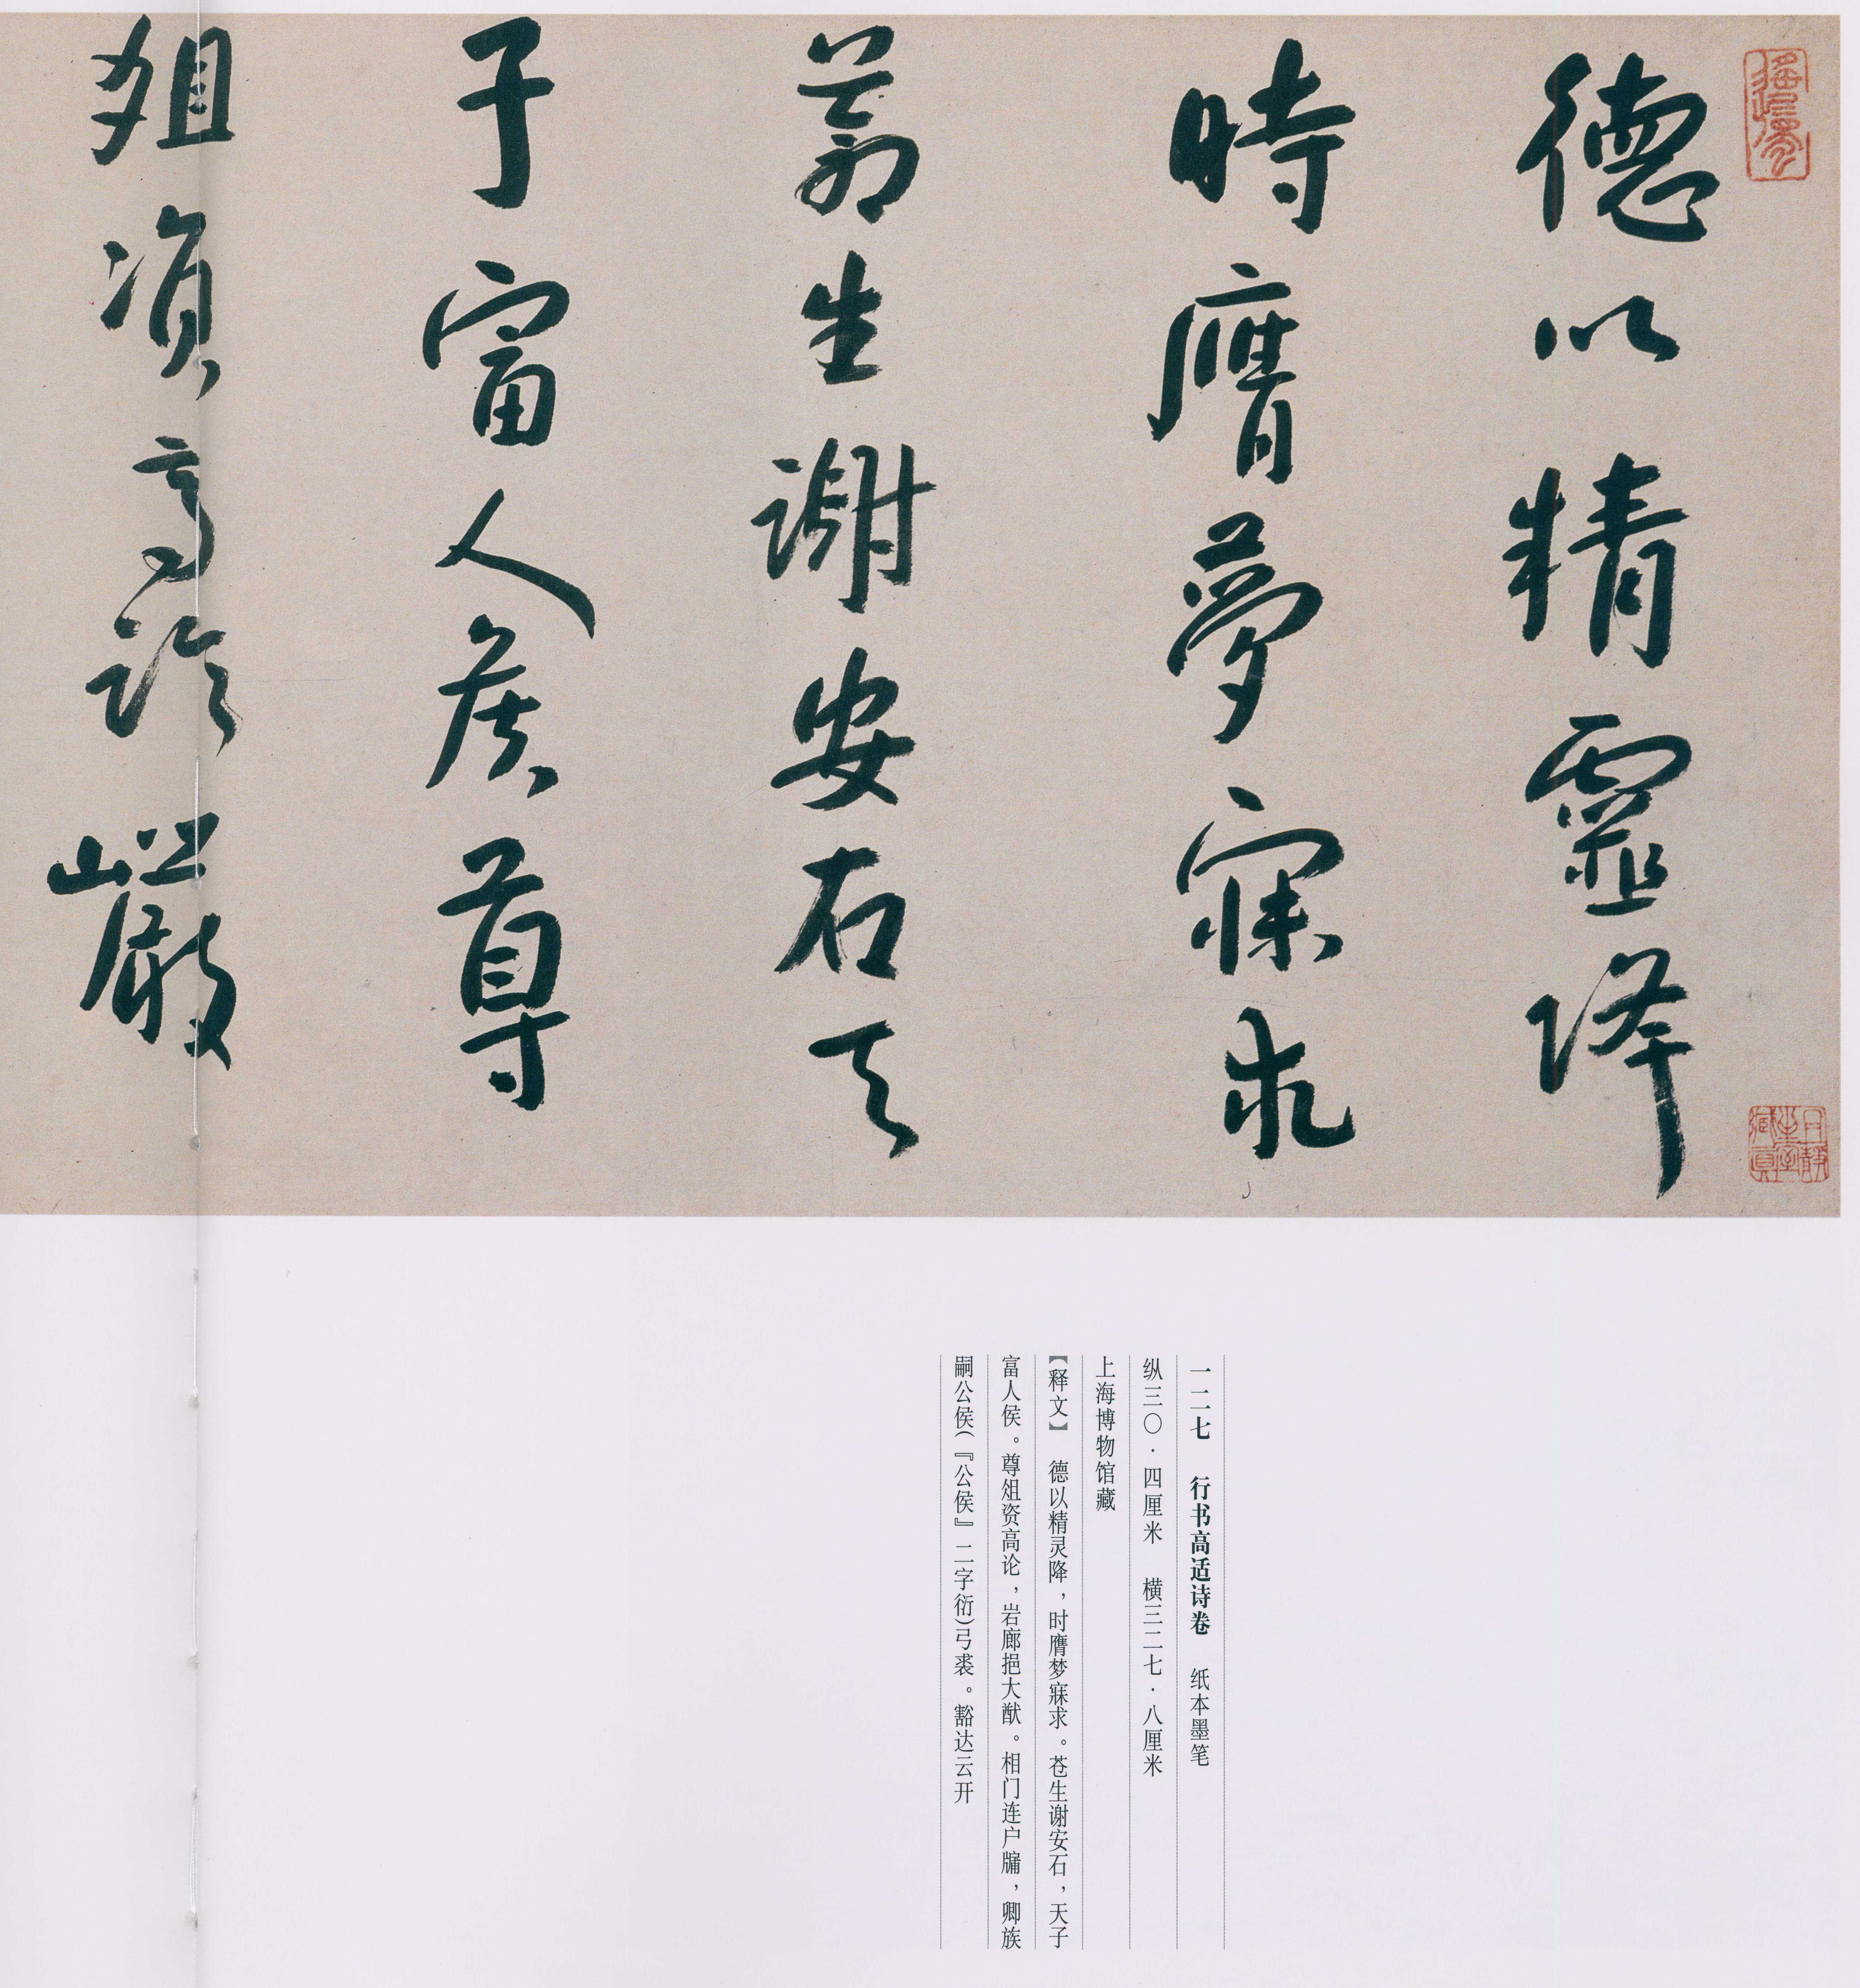 德以精靈降
時膺夢寐求
蒼生謝安石天
子富人侯尊
俎資高論巖
一二七　行书高适诗卷　纸本墨笔
纵三〇·四厘米　横三二七·八厘米
上海博物馆藏
【释文】　德以精灵降，时膺梦寐求。苍生谢安石，天子
富人侯。尊俎资高论，岩廊挹大猷。相门连户牖，卿族
嗣公侯（『公侯』二字衍）弓裘。豁达云开